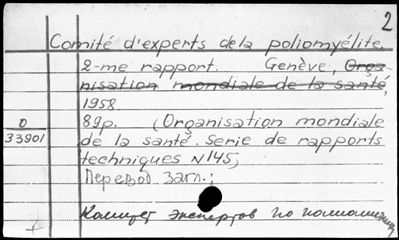 2
Comité d'experts de la poliomyélite.
2-me rapport. Genève, Orga-
nisation mondiale de la santé,
1958
89p. (Organisation mondiale
0
33901
de la santé. Serie de rapports
techniques N145)
Перевод загл.:
Комитет экспертов по полиомиелиту